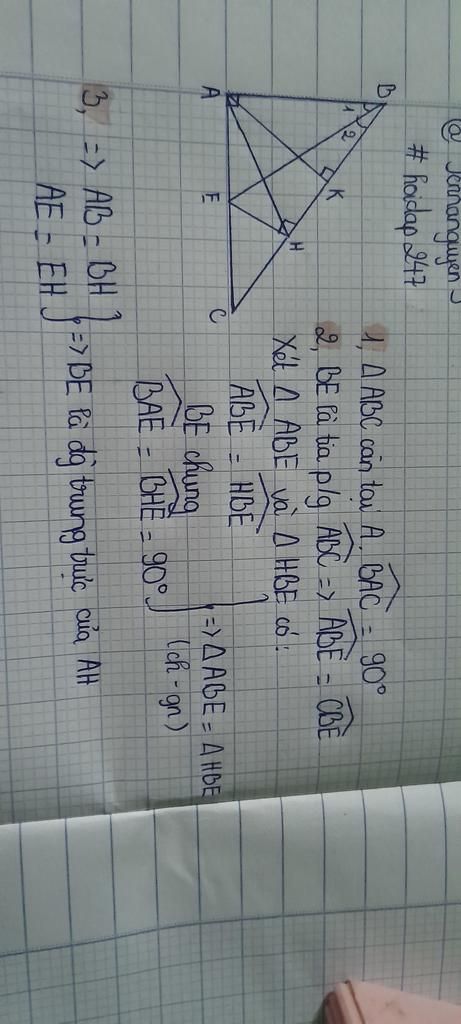 @ Jennanguyen
# hoidap 247
B
1
2
K
H
A
E
C
1, Δ ABC cân tại A, \widehat{BAC} = 90°
2, BE là tia p/g \widehat{ABC} => \widehat{ABE} = \widehat{CBE}
Xét Δ ABE và Δ HBE có:
\widehat{ABE} = \widehat{HBE}
BE chung
\widehat{BAE} = \widehat{BHE} = 90°
} => Δ ABE = Δ HBE
(ch - gn)
3, => AB = BH
AE = EH
} => BE là đg trung trực của AH